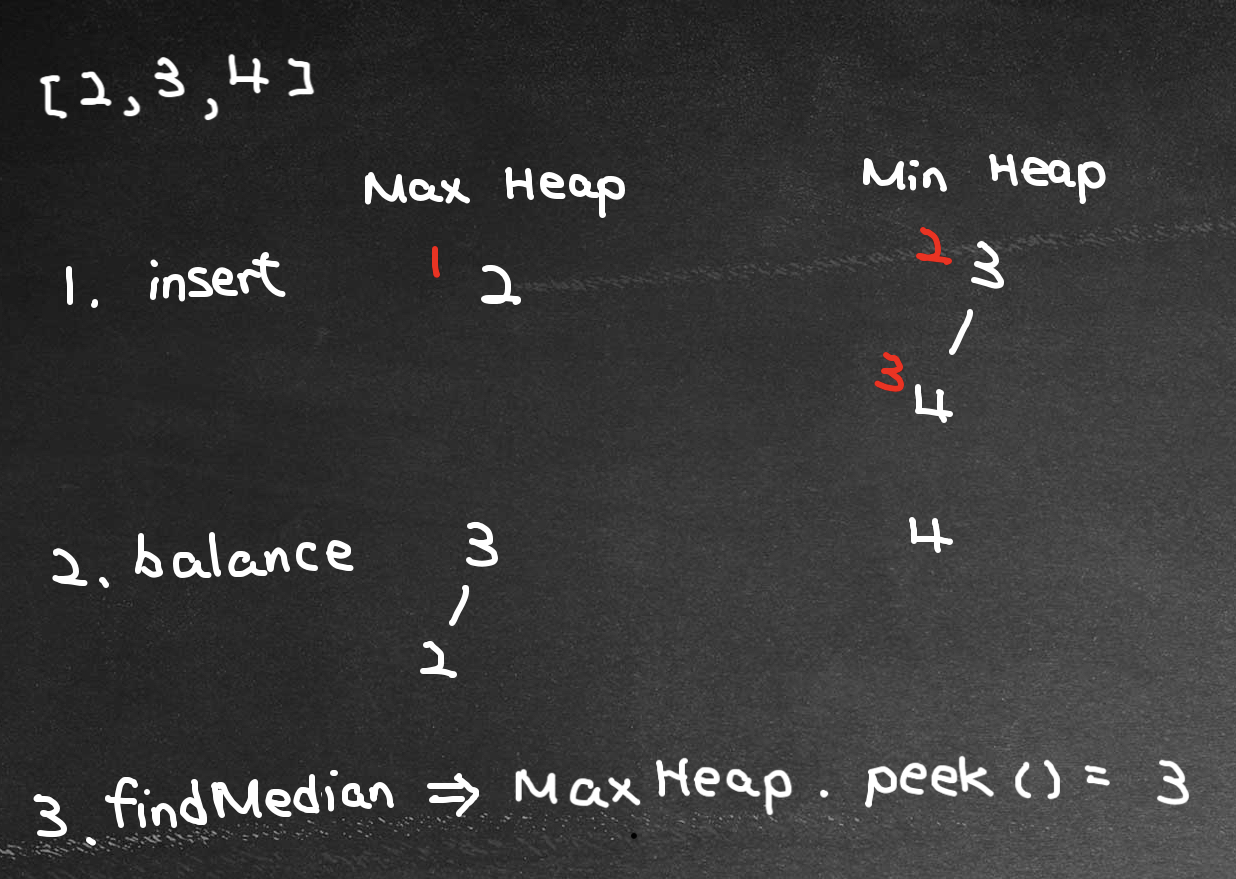 [2,3,4]
Max Heap Min Heap
1. insert 1 2 2 3
3 4
2. balance 3 4
2
3. findMedian ⇒ MaxHeap.peek() = 3